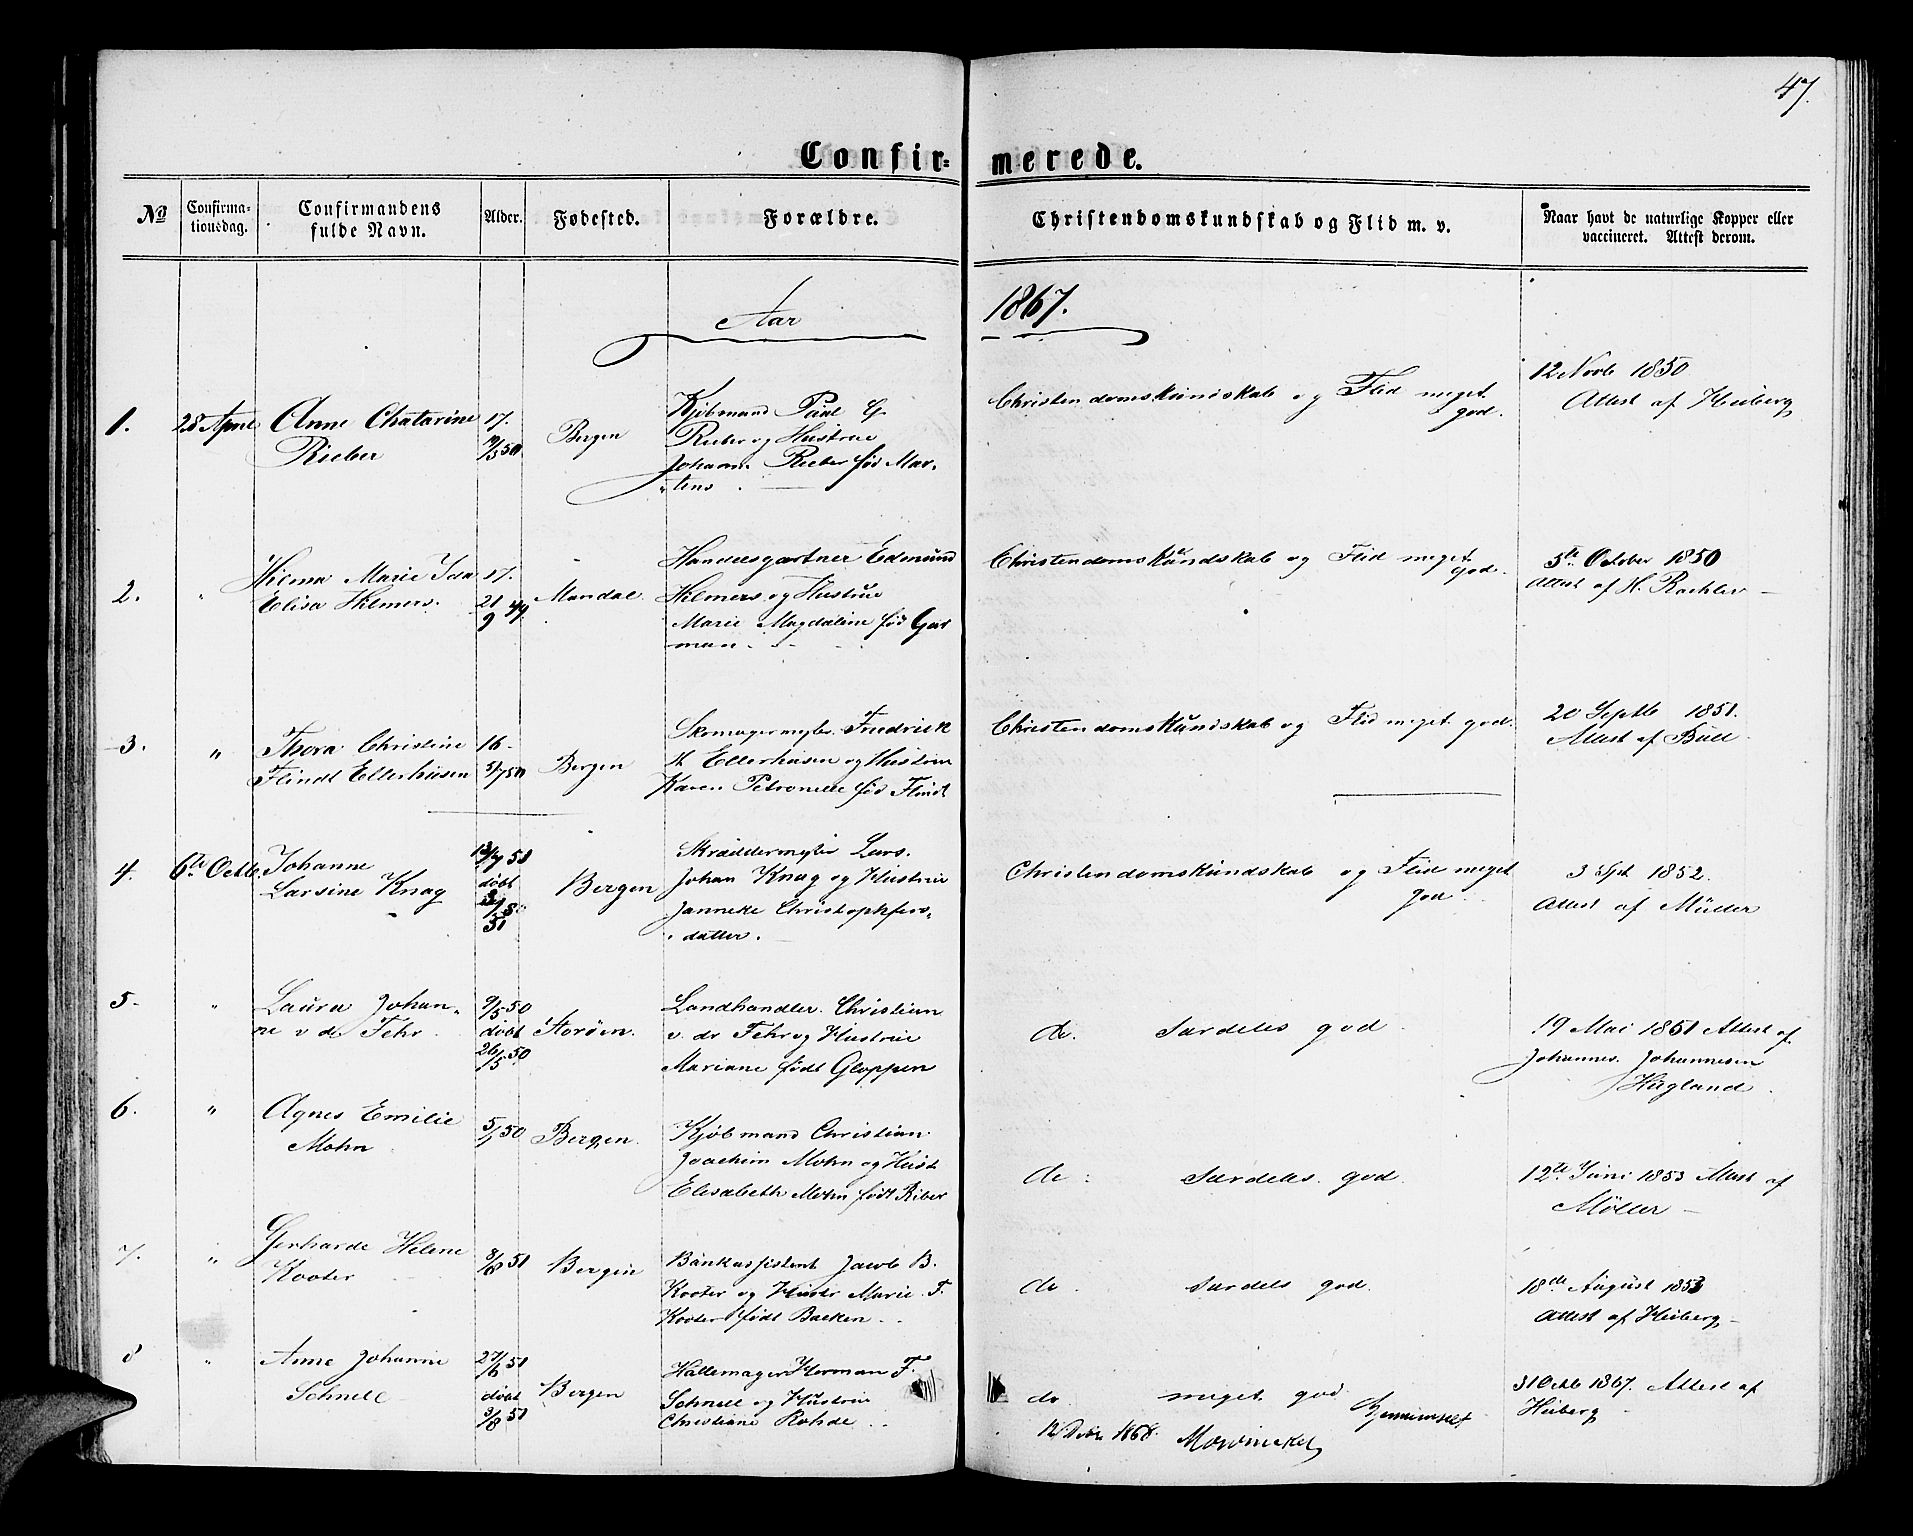 47.
Confir= merede.
No
Confirma-
tionsdag.
Confirmandens
fulde Navn.
Alder.
Fødested.
Forældre.
Christendomskundskab og Flid m. v.
Naar havt de naturlige Kopper eller
vaccineret. Attest derom.
Aar 1867.
1. 28 April Anne Chatarine 17. Bergen Kjøbmand Paul G. Christendomskundskab og Flid meget 12 Novb 1850
Rieber Rieber og Hustrue god. Attest af Heiberg
Johanne Rieber fød Mar-
tens
2. " Hilma Marie Ida 17. Mandal Handelsgartner Edmund Christendomskundskab og Flid meget 5te October 1850
Elisa Hilmers. 21/9 49 Hilmers og Hustrue god. Attest af H. Rachlev
Marie Magdaline fød Gar
man
3. " Thora Christine 16 Bergen Skomagermester Fredrick Christendomskundskab og Flid meget god. 20 Septb 1851.
Flindt Ellerhusen 5/7 50 H Ellerhusen og Hustrue Attest af Bull
Karen Petronelle fød Flindt
4. 6te Octb. Johanne 13/7 51 Bergen Skræddermester Lars Christendomskundskab og Flid meget 3 Spt 1852.
Larsine Knag døbt Johan Knag og Hustrue god. Attest af Müller
51 Janneke Christophfers-
datter.
5. " Laura Johan- 9/5 50 Storøen. Landhandler Christian do. Særdeles god. 19 Mai 1851 Attest af
ne v d Fehr døbt v. dr Fehr og Hustrue Johannes Johannesen
26/5 50 Mariane født Gloppen Hugland
6. " Agnes Emilie 5/1 50 Bergen. Kjøbmand Christian do: Særdeles god. 12te Juni 1853 Attest af
Mohn Joachim Mohn og Hust Møller
Elisabeth Mohn født Riber
7. " Gerharde Helene 8/8 51 Bergen Bankassistent Jacob B. do. Særdeles god. 18de August 1853
Kooter Kooter og Hustr Marie F. Attest af Heiberg
Kooter født Backen
8 " Anne Johanne 27/6 51 Bergen Hattemager Herman F. do. meget god 31 Octb 1867. Attest af
Schnell døbt Schnell og Hustrue Heiberg
3/8 51 Christiane Rohde
12/ 1868. Mowinckel Gjennemseet